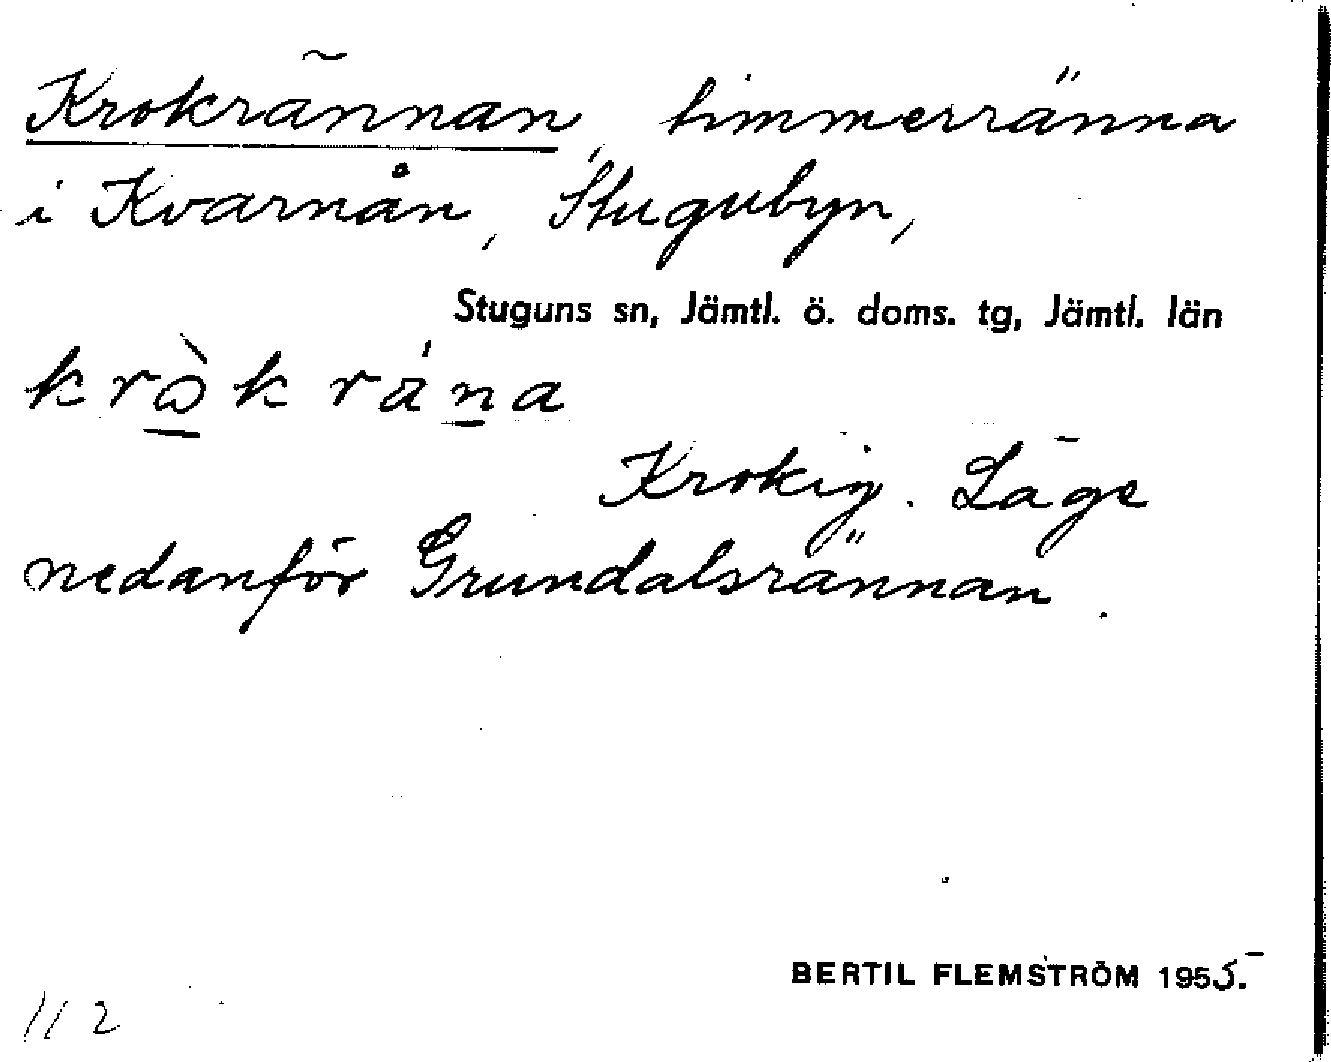 Krokrännan, timmerränna
i Kvarnån, Stugubyn,
Stuguns sn, Jämtl. ö. doms. tg, Jämtl. län
krò̱k rá̈ṉa
Krokig. Läge
nedanför Grundalsrännan.
BERTIL FLEMSTRÖM 1955.
112